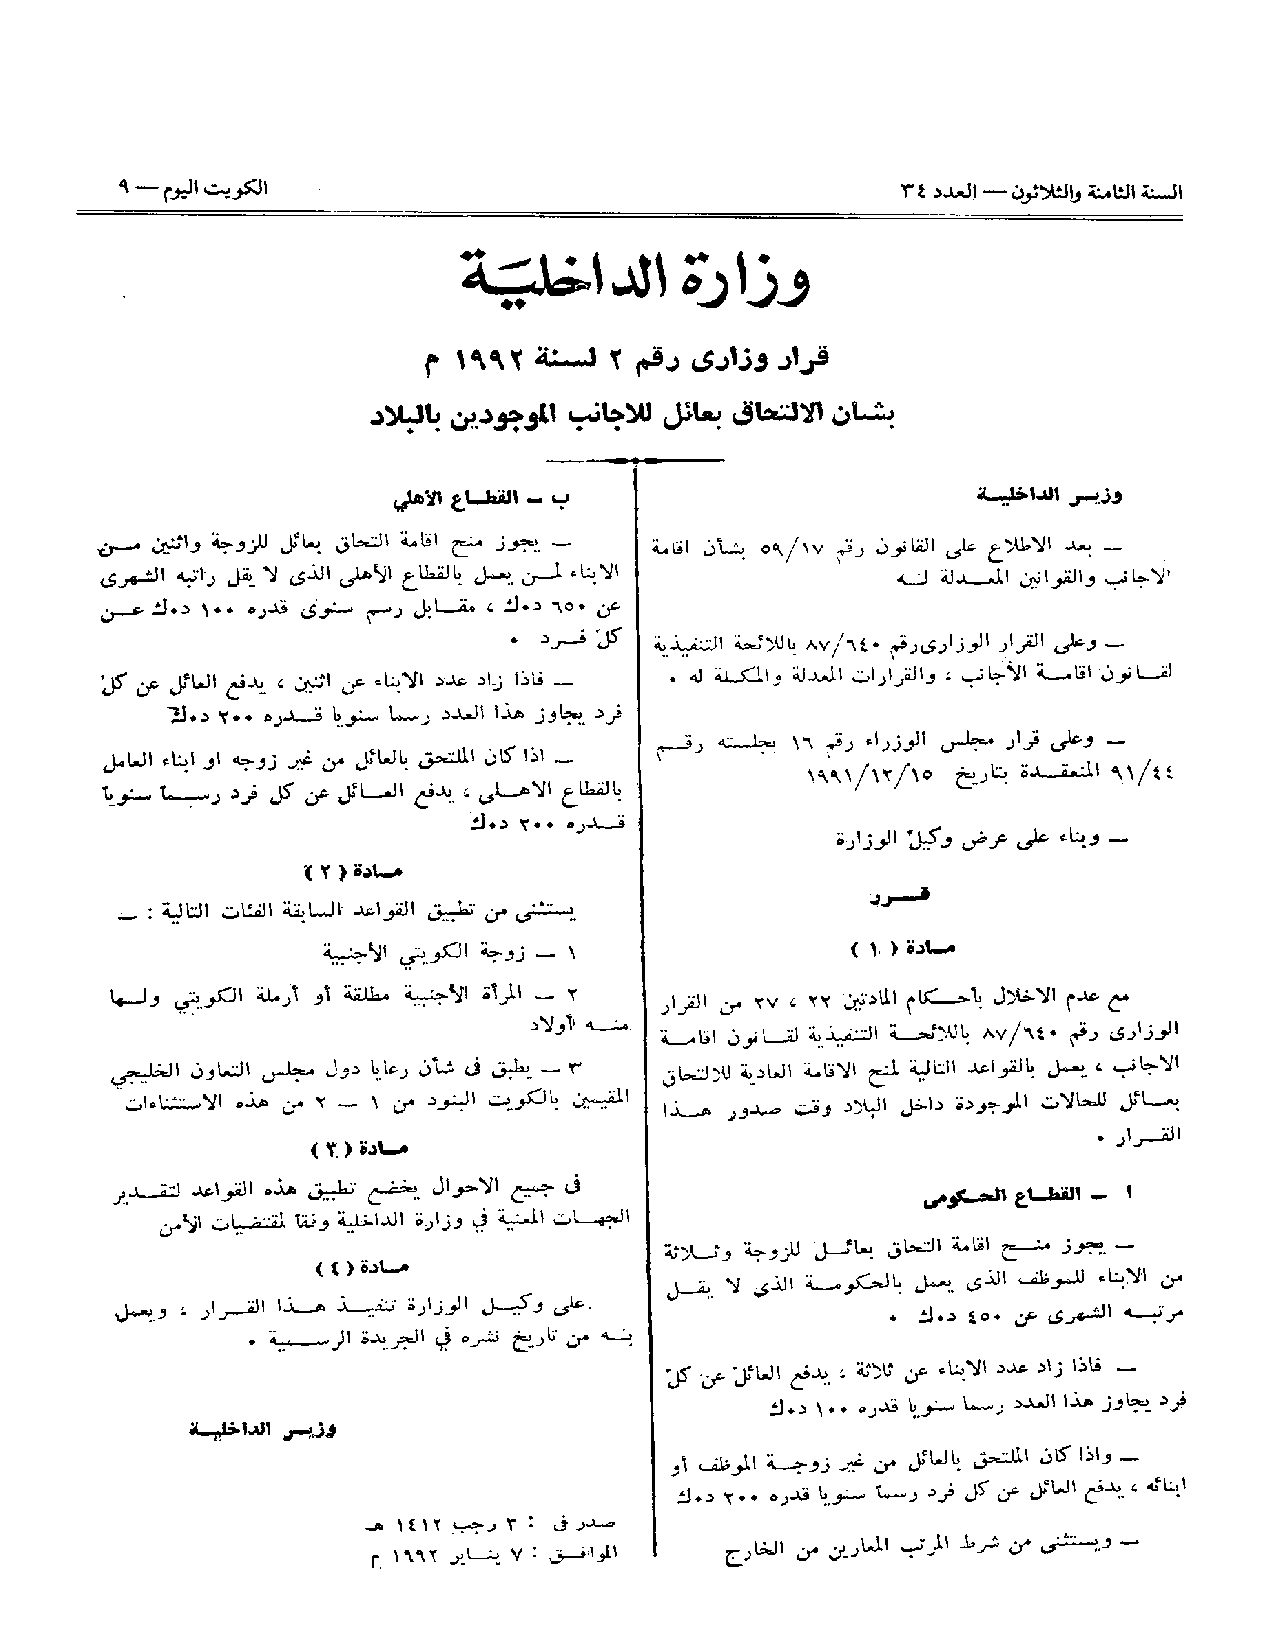 السنة الثامنة والثلاثون — العدد ٣٤
الكويت اليوم — ٩
وزارة الداخلية
قرار وزارى رقم ٢ لسنة ١٩٩٢ م
بشان الالتحاق بعائل للاجانب الموجودين بالبلاد
وزير الداخلية
— بعد الاطلاع على القانون رقم ٥٩/١٧ بشأن اقامة
الاجانب والقوانين المعدلة له
— وعلى القرار الوزارى رقم ٨٧/٦٤٠ باللائحة التنفيذية
لقانون اقامة الأجانب ، والقرارات المعدلة والمكملة له .
— وعلى قرار مجلس الوزراء رقم ١٦ بجلسته رقم
٩١/٤٤ المنعقدة بتاريخ ١٩٩١/١٢/١٥
— وبناء على عرض وكيل الوزارة
قرر
مادة ( ١ )
مع عدم الاخلال بأحكام المادتين ٢٢ ، ٢٧ من القرار
الوزارى رقم ٨٧/٦٤٠ باللائحة التنفيذية لقانون اقامة
الأجانب ، يعمل بالقواعد التالية لمنح الاقامة العادية للالتحاق
بعائل للحالات الموجودة داخل البلاد وقت صدور هذا
القرار .
ا - القطاع الحكومى
— يجوز منح اقامة التحاق بعائل للزوجة وثلاثة
من الابناء للموظف الذى يعمل بالحكومة الذى لا يقل
مرتبه الشهرى عن ٤٥٠ د.ك .
— فاذا زاد عدد الابناء عن ثلاثة ، يدفع العائل عن كل
فرد يجاوز هذا العدد رسما سنويا قدره ١٠٠ د.ك
— واذا كان الملتحق بالعائل من غير زوجة الموظف أو
ابنائه ، يدفع العائل عن كل فرد رسما سنويا قدره ٢٠٠ د.ك
— ويستثنى من شرط المرتب المعارين من الخارج
ب - القطاع الأهلي
— يجوز منح اقامة التحاق بعائل للزوجة واثنين من
الابناء لمن يعمل بالقطاع الأهلى الذى لا يقل راتبه الشهرى
عن ٦٥٠ د.ك ، مقابل رسم سنوى قدره ١٠٠ د.ك عن
كل فرد .
— فاذا زاد عدد الابناء عن اثنين ، يدفع العائل عن كل
فرد يجاوز هذا العدد رسما سنويا قدره ٢٠٠ د.ك
— اذا كان الملتحق بالعائل من غير زوجه او ابناء العامل
بالقطاع الاهلى ، يدفع العائل عن كل فرد رسما سنويا
قدره ٢٠٠ د.ك
مادة ( ٢ )
يستثنى من تطبيق القواعد السابقة الفئات التالية : —
١ — زوجة الكويتي الأجنبية
٢ — المرأة الأجنبية مطلقة أو أرملة الكويتي ولها
منه أولاد
٣ — يطبق فى شأن رعايا دول مجلس التعاون الخليجي
المقيمين بالكويت البنود من ١ — ٢ من هذه الاستثناءات
مادة ( ٣ )
فى جميع الاحوال يخضع تطبيق هذه القواعد لتقدير
الجهات المعنية في وزارة الداخلية وفقا لمقتضيات الأمن
مادة ( ٤ )
على وكيل الوزارة تنفيذ هذا القرار ، ويعمل
به من تاريخ نشره في الجريدة الرسمية .
وزير الداخلية
صدر فى : ٣ رجب ١٤١٢ هـ
الموافق : ٧ يناير ١٩٩٢ م